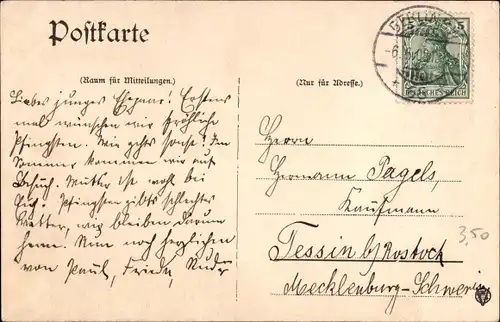 Postkarte
(Raum für Mitteilungen.)
Liebes junges Ehepaar! Erstens
mal wünschen wir fröhliche
Pfingsten. Wie gehts sonst? Den
Sommer kommen wir auf
Besuch. Mutter ist wohl bei
Euch. Pfingsten gibts schlechtes
Wetter, wir bleiben darum
heim. Nun noch herzlichen
von Paul, Frieda,
(Nur für Adresse.)
BERLIN
5
DEUTSCHES REICH
Herrn
Hermann Pagels,
Kaufmann
Tessin b/Rostock
Mecklenburg-Schwerin
3,50